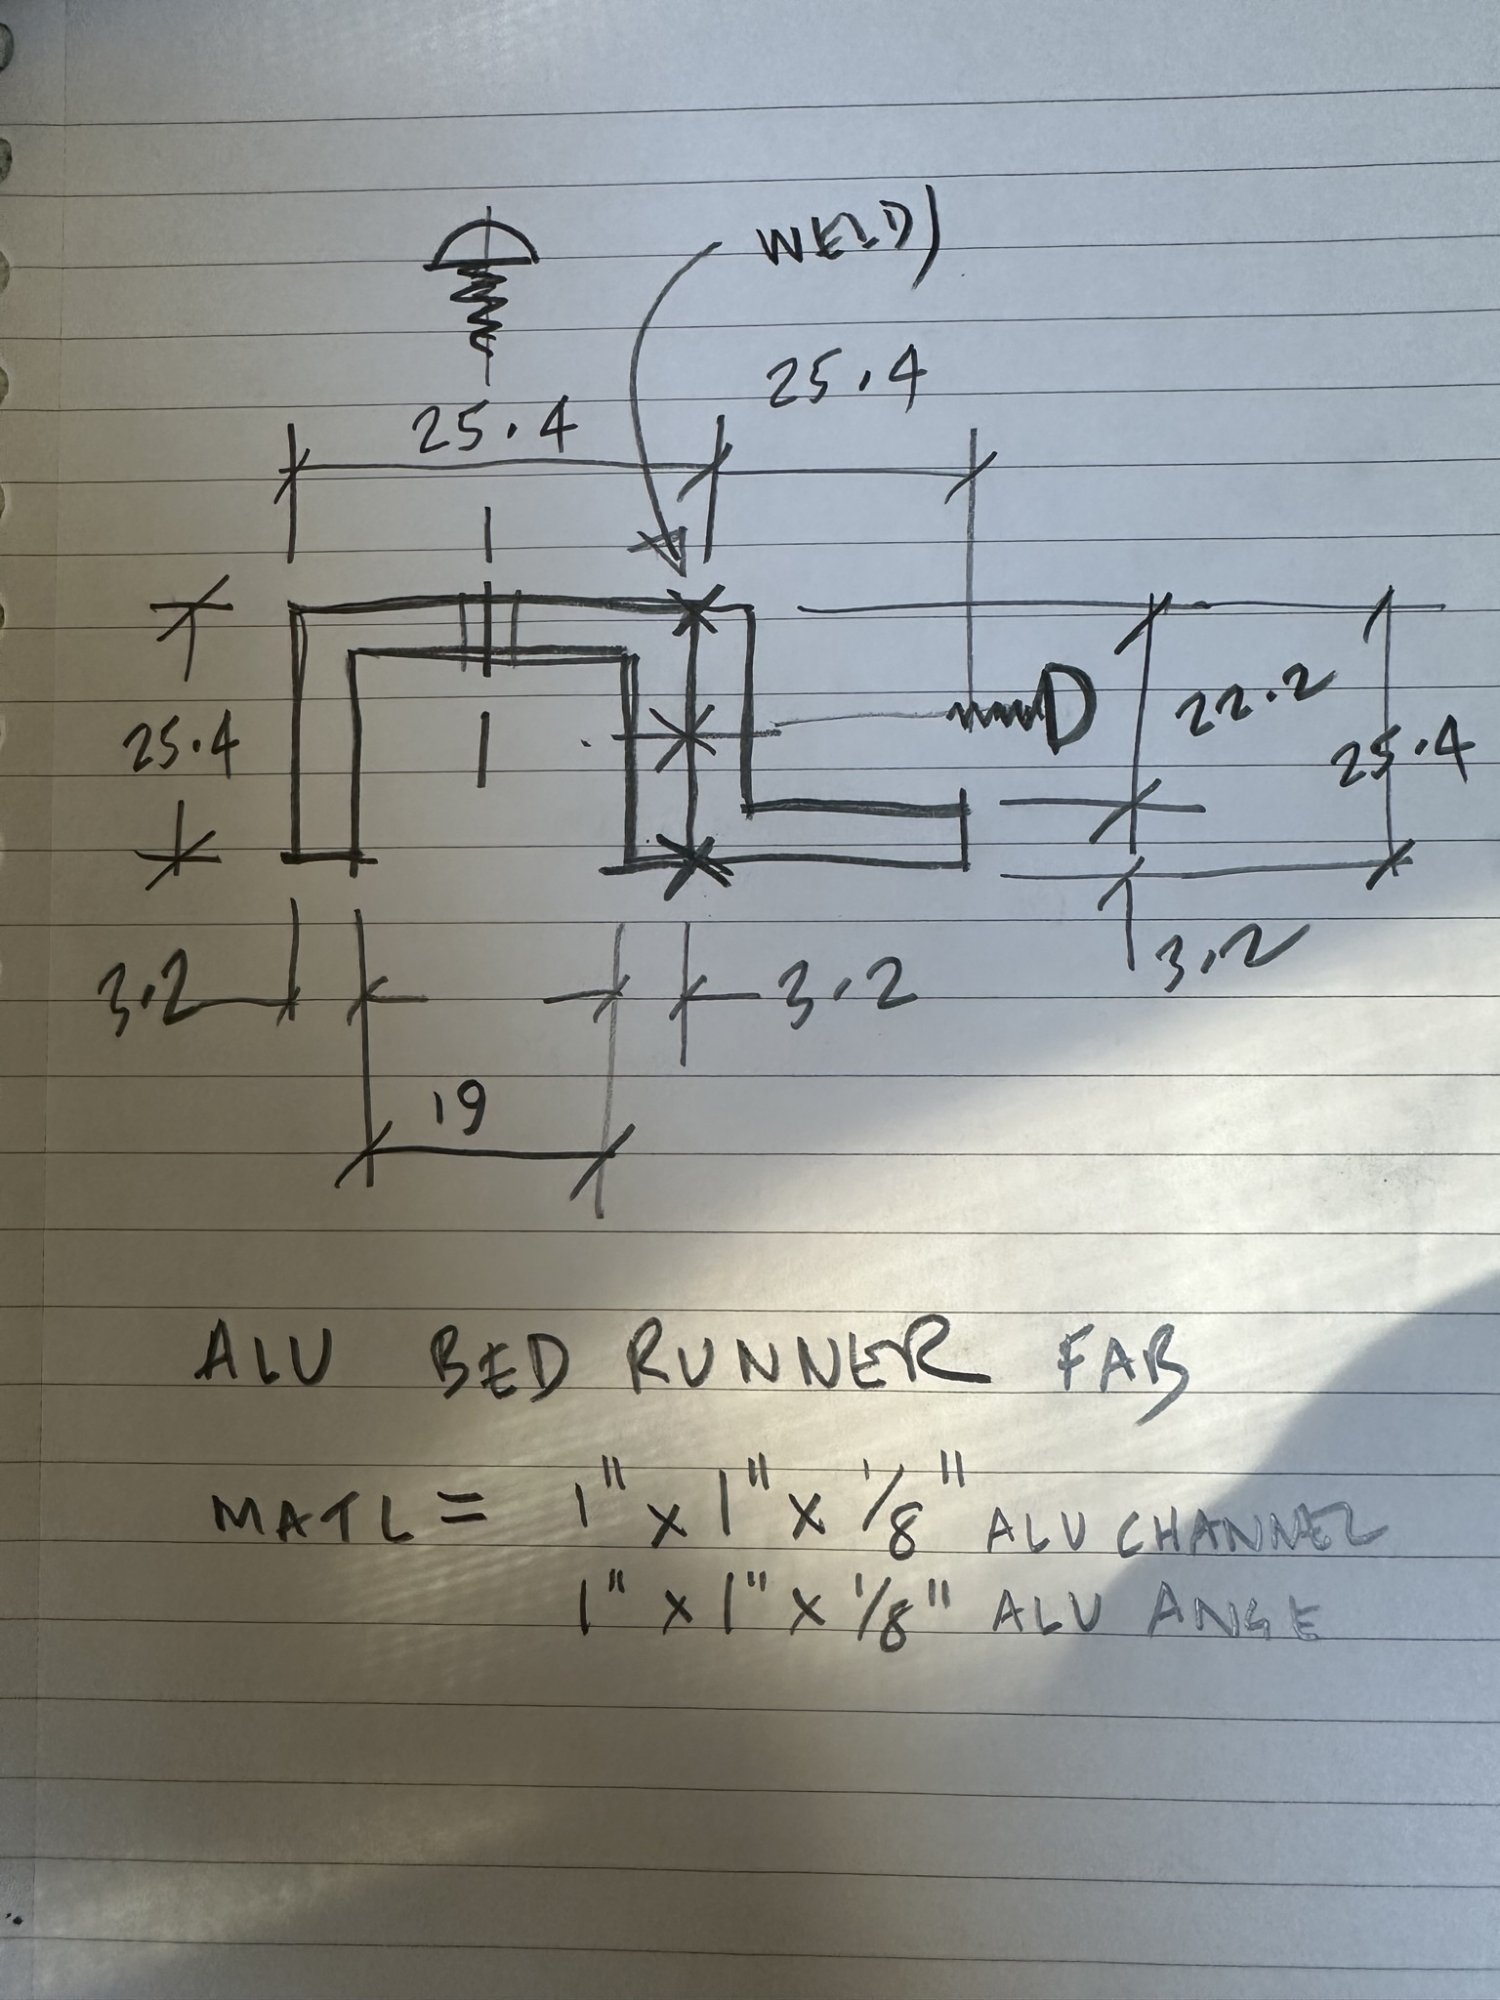 WELD
25.4
25.4
22.2
25.4
25.4
3.2
3.2
3.2
19
ALU BED RUNNER FAB
MATL = 1" x 1" x 1/8" ALU CHANNEL
1" x 1" x 1/8" ALU ANGE